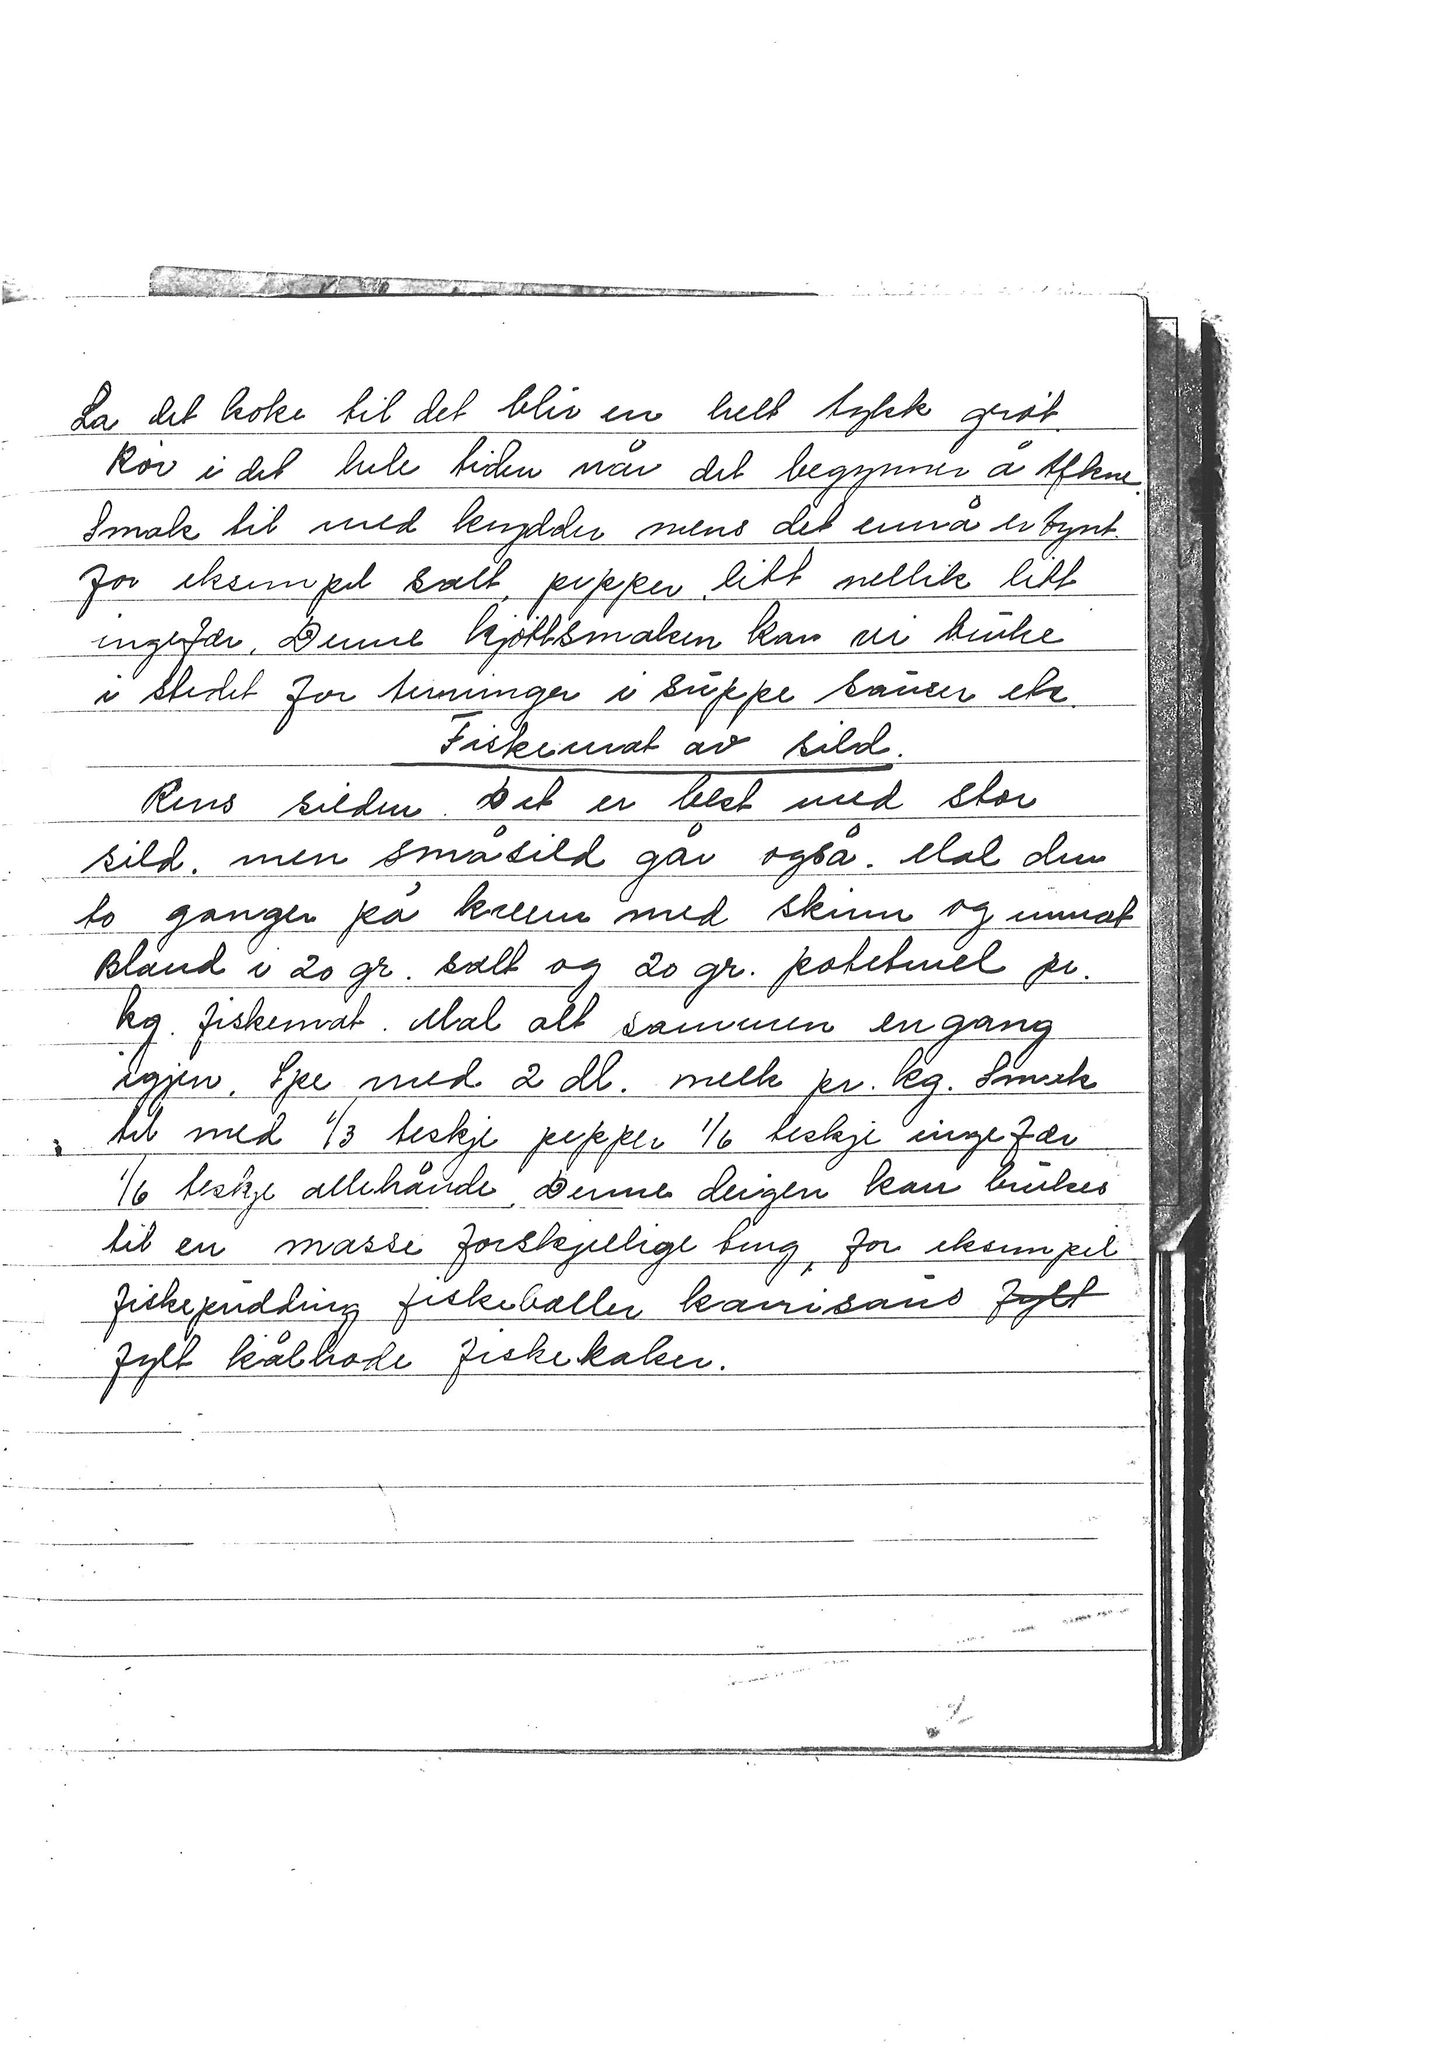 La det koke til det blir en helt tykk grøt.
Rør i det hele tiden når det begynner å tykne.
Smak til med krydder mens det ennå er tynt.
for eksempel salt, pepper, litt nellik litt
ingefær. Denne kjøttsmaken kan vi bruke
i stedet for terninger i suppe sauser etc.
Fiskemat av sild.
Rens silden. Det er best med stor
sild. men småsild går også. Mal den
to ganger på kvern med skinn og innmat
Bland i 20 gr. salt og 20 gr. potetmel pr.
kg. fiskemat. Mal alt sammen en gang
igjen. Spe med 2 dl. melk pr. kg. Smak
til med 1/3 teskje pepper 1/6 teskje ingefær
1/6 teskje allehånde. Denne deigen kan brukes
til en masse forskjellige ting, for eksempel
fiskepudding fiskeboller karrisaus fylt
fylt kålhode fiskekaker.